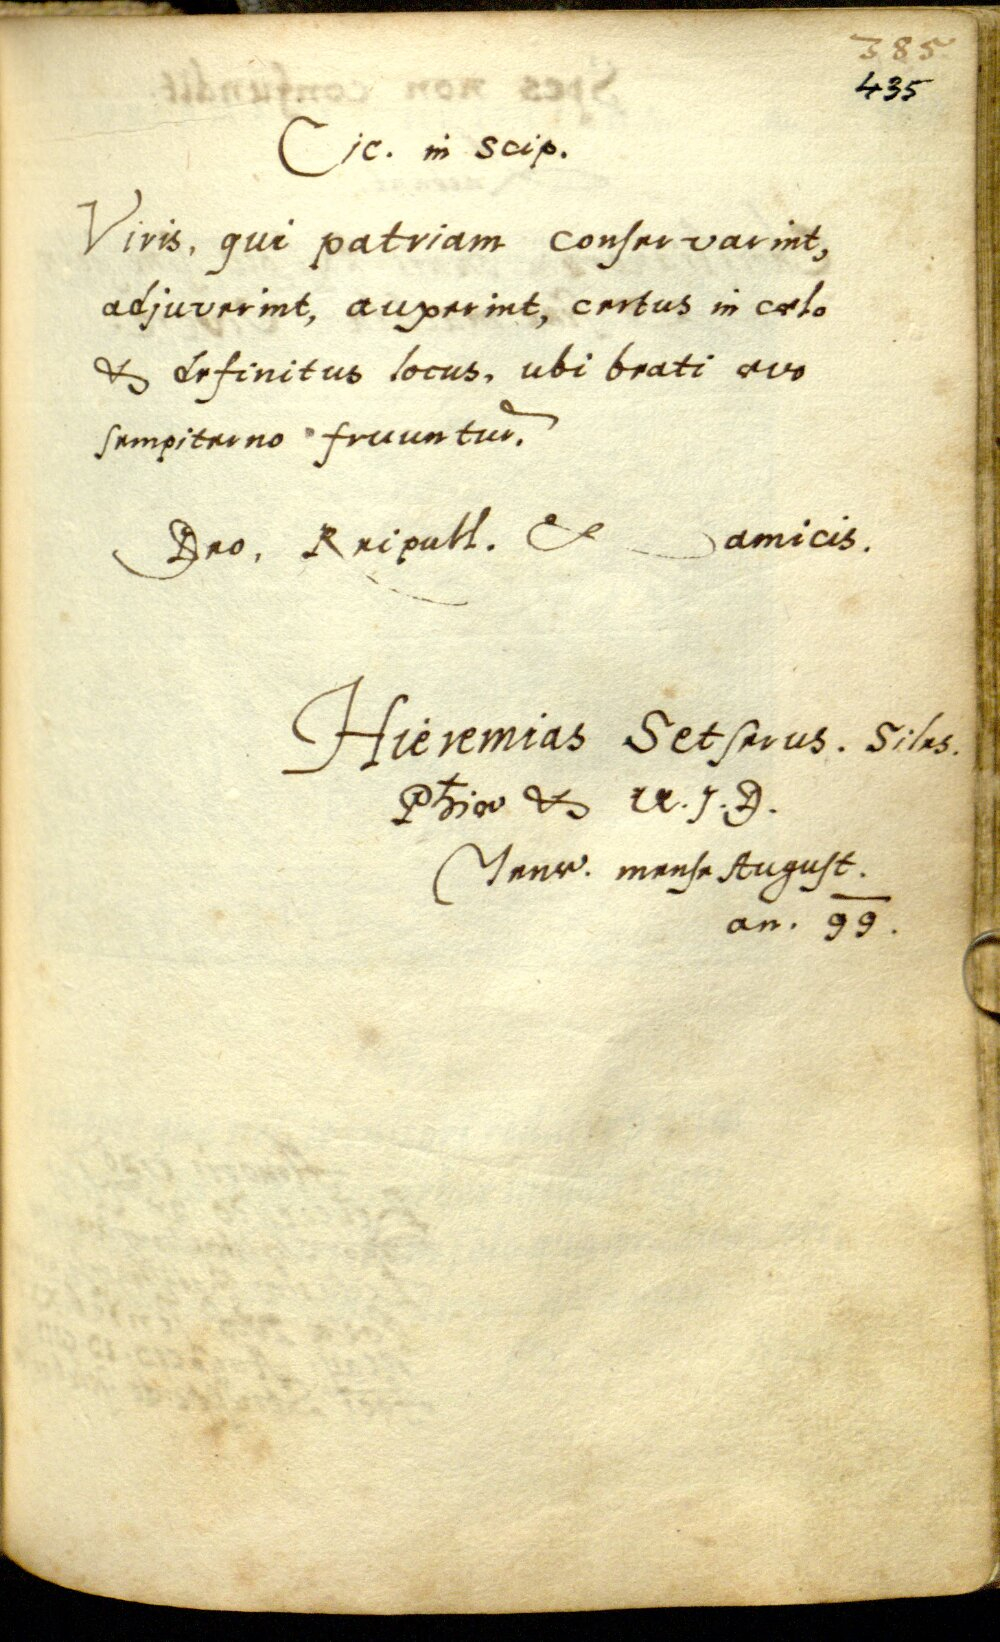 385.
435
Cic. in Scip.
Viris, qui patriam conservarint,
adjuverint, auxerint, certus in cælo
& definitus locus, ubi beati ævo
sempiterno fruuntur.
Deo, Reipubl. & amicis.
Hieremias Setserus. Siles.
Phiæ & U. J. D.
Jenæ. mense August.
an. 99.
Spes non confundit